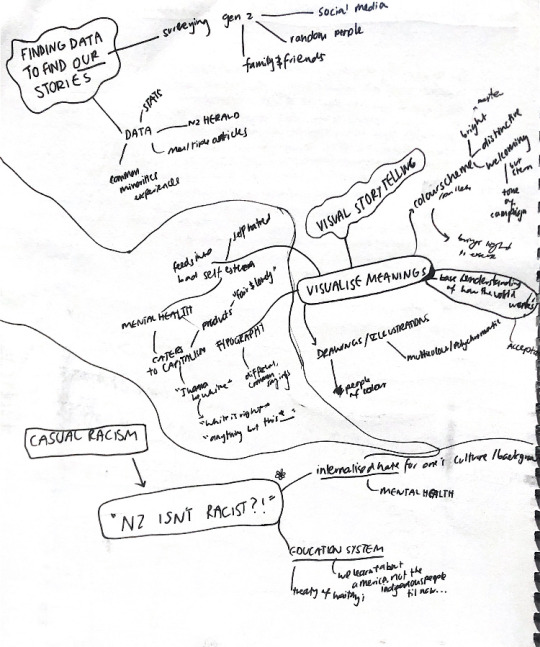 FINDING DATA
TO FIND OUR
STORIES
surveying gen z
social media
random people
family & friends
DATA
STATS
NZ HERALD
multiple articles
common
minorities
experiences
VISUAL STORYTELLING
VISUALISE MEANINGS
colour scheme
bright
distinctive
welcoming
but
stern
tone
of
campaign
base understanding
of how the world
works
DRAWINGS/ILLUSTRATIONS
people
of colour
self hatred
feeds into
bad self esteem
MENTAL HEALTH
products
"fair & lovely"
CATERS
TO CAPITALISM
TYPOGRAPHY
different,
common
sayings
"I wanna
"white is right"
"anything but this
CASUAL RACISM
"NZ ISN'T RACIST?!"
internalised hate for one's culture/backgroun
MENTAL HEALTH
EDUCATION SYSTEM
we learn about
america, not the
indigenous people
til now...
treaty of waitangi